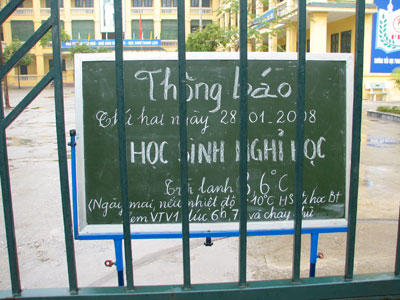 Thông báo
Thứ hai ngày 28.01.2008
HỌC SINH NGHỈ HỌC
Trời lạnh 8,6°C
(Ngày mai, nếu nhiệt độ 10°C HS đi học Bt
Xem VTV1 lúc 6h,7h và chạy chữ